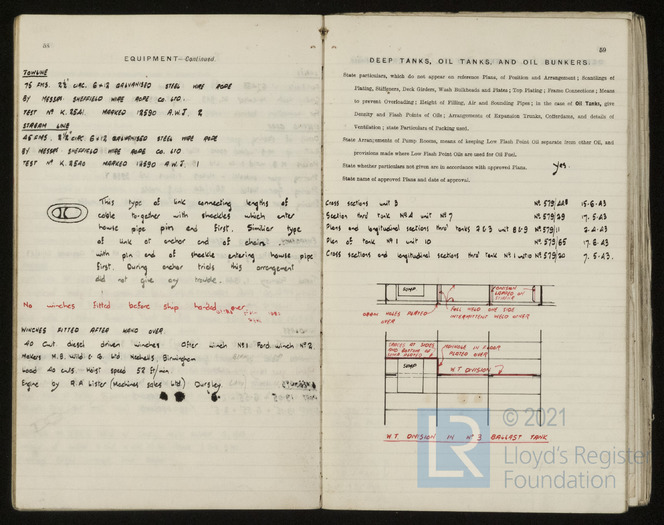 58
EQUIPMENT—Continued.
TOWLINE
75 FMS. 2½" CIRC. 6×12 GALVANISED STEEL WIRE ROPE
BY MESSRS SHEFFIELD WIRE ROPE CO. LTD.
TEST Nº K.2541. MARKED 12590 A.W.J. 2
STREAM LINE
45 FMS. 2½" CIRC 6×12 GALVANISED STEEL WIRE ROPE
BY MESSRS SHEFFIELD WIRE ROPE CO. LTD.
TEST Nº K.2540 MARKED 12590 A.W.J. 1
This type of link connecting lengths of
cable together with shackles which enter
hawse pipe pin end first. Similar type
of link at anchor end of chains
with pin end of shackle entering hawse pipe
first. During anchor trials this arrangement
did not give any trouble.
No winches fitted before ship handed over
WINCHES FITTED AFTER HAND OVER.
40 Cwt. diesel driven winches After winch Nº1 Ford. winch Nº2
Makers M.B. Wild & Co Ltd Nechells, Birmingham
Load 40 cwts Hoist speed 52 ft/min.
Engine by R.A Lister (Machines sales Ltd) Dursley.
59
DEEP TANKS, OIL TANKS, AND OIL BUNKERS.
State particulars, which do not appear on reference Plans, of Position and Arrangement; Scantlings of
Plating, Stiffeners, Deck Girders, Wash Bulkheads and Plates; Top Plating; Frame Connections; Means
to prevent Overloading; Height of Filling, Air and Sounding Pipes; in the case of Oil Tanks, give
Density and Flash Points of Oils; Arrangements of Expansion Trunks, Cofferdams, and details of
Ventilation; state Particulars of Packing used.
State Arrangements of Pump Rooms, means of keeping Low Flash Point Oil separate from other Oil, and
provisions made where Low Flash Point Oils are used for Oil Fuel.
State whether particulars not given are in accordance with approved Plans. yes.
State name of approved Plans and date of approval.
Cross sections unit 3 Nº 579/22B 15-6-43
Section thro' tank Nº4 unit Nº7 Nº 579/29 17.5-43
Plans and longitudinal sections thro' tanks 2&3 unit 8&9 Nº 579/11 2.4-43
Plan of tank Nº1 unit 10 Nº 579/65 17.6.43
Cross sections and longitudinal sections thro' tank Nº1 unit 10 Nº 579/20 7.5.43.
SUMP
LAPPED ON
DRAIN HOLES PLATED
OVER
FULL WELD ONE SIDE
INTERMITTENT WELD OTHER
SPACES AT SIDES
AND BOTTOM OF
SUMP PLATED
MANHOLE IN FLOOR
PLATED OVER
SUMP
W.T. DIVISION
W.T. DIVISION IN Nº 3 BALLAST TANK
© 2021
LR
Lloyd's Register
Foundation